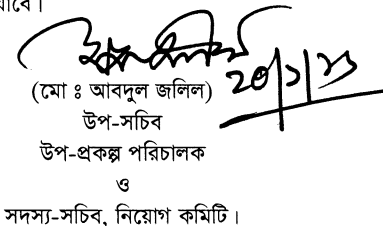 যাবে।
(মো ঃ আবদুল জলিল)
উপ-সচিব
উপ-প্রকল্প পরিচালক
ও
সদস্য-সচিব, নিয়োগ কমিটি।